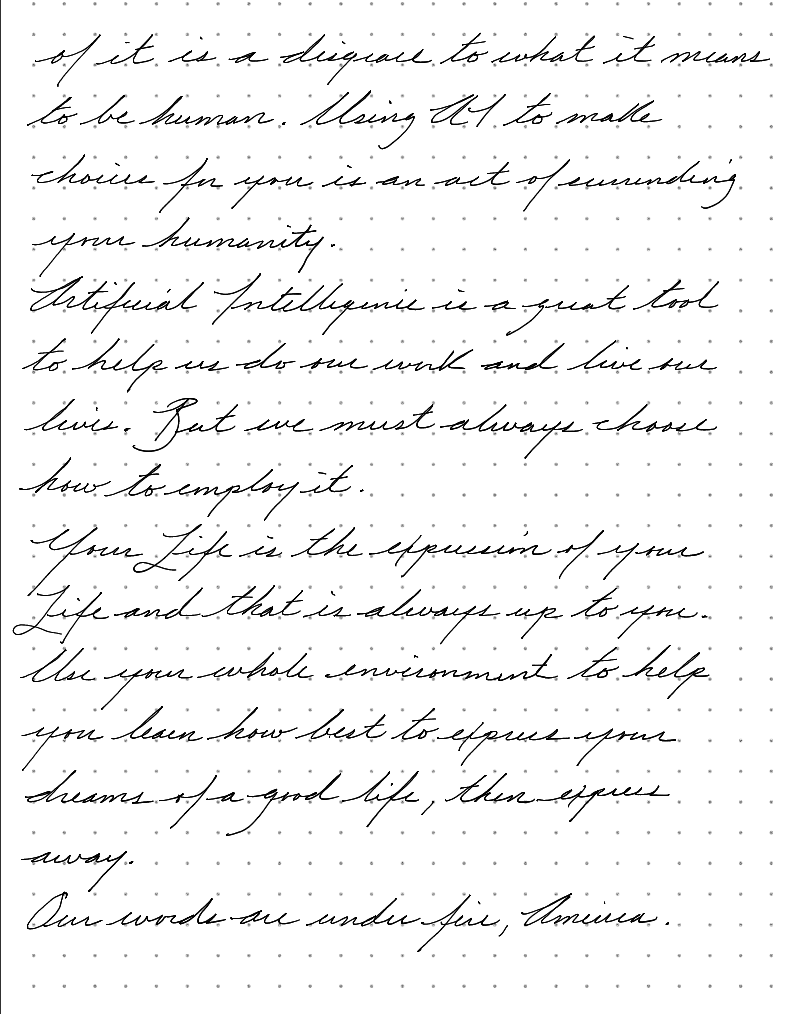 of it is a disgrace to what it means
to be human. Using AI to make
choices for you is an act of surrending
your humanity.
Artificial Intelligence is a great tool
to help us do our work and live our
lives. But we must always choose
how to employ it.
Your Life is the expression of your
Life and that is always up to you.
Use your whole environment to help
you learn how best to express your
dreams of a good life, then express
away.
Our words are under fire, America.